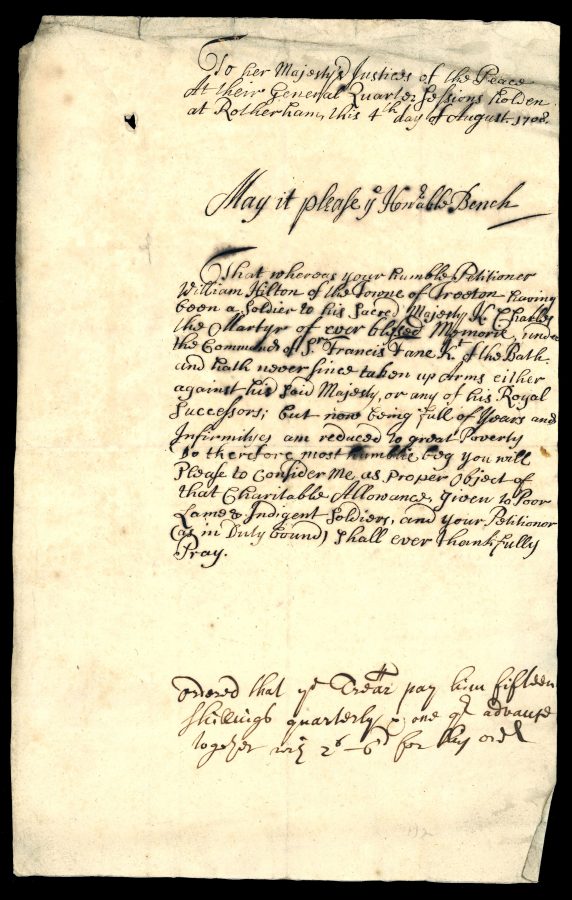 To her Majesty's Justices of the Peace
At their General Quarter Sessions holden
at Rotherham, this 4th day of August. 1708.
May it please ye Honrable Bench
That whereas your humble Petitioner
William Hilton of the Towne of Treeton having
been a Soldier to his Sacred Majesty K. Charles
the Martyr of ever blessed Memorie, under
the Command of Sr. Francis Fane Kt. of the Bath
and hath never since taken up Arms either
against his said Majesty, or any of his Royal
Successors; but now being full of Years and
Infirmityes am reduced to great Poverty
Do therefore most humblie beg you will
Please to Consider Me, as Proper Object of
that Charitable Allowance, given to Poor
Lame & Indigent Soldiers, and your Petitioner
(as in Duty bound) shall ever thankfully
Pray.
Ordered that ye Trear pay him fifteen
Shillings quarterly & one qr advance
together with 2s-6d for this order